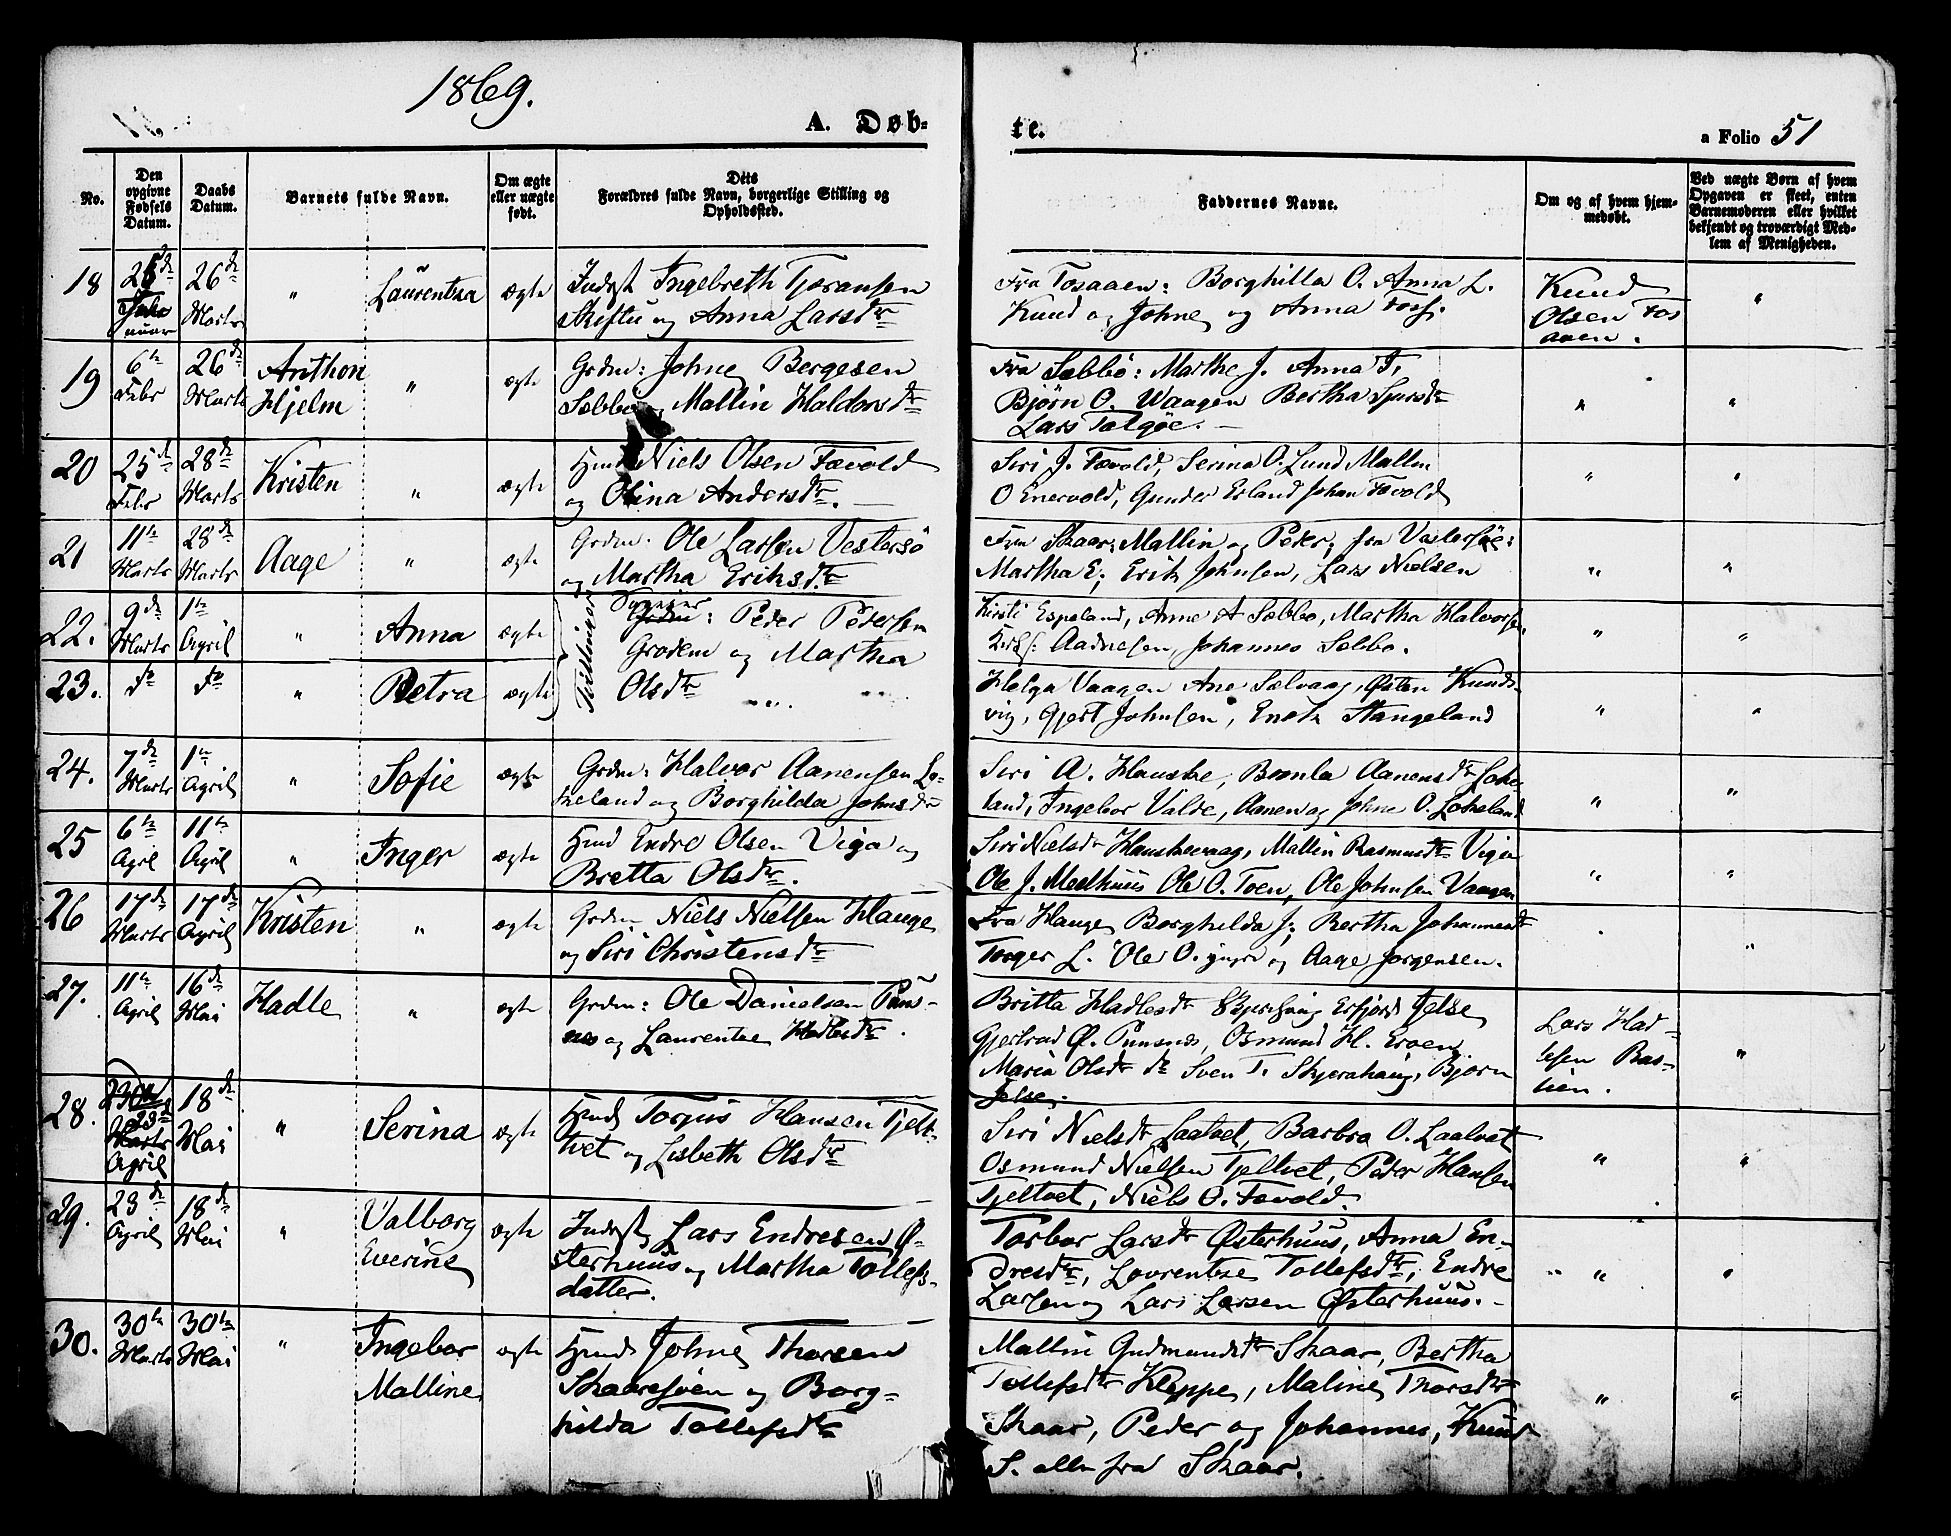 1869.
A. Døb=
te.
a Folio 51
No.
Den opgivne Fødsels Datum.
Daabs Datum.
Barnets fulde Navn.
Om ægte eller uægte født.
Dets Forældres fulde Navn, borgerlige Stilling og Opholdssted.
Faddernes Navne.
Om og af hvem hjemmedøbt.
Ved uægte Børn af hvem Opgaven er skeet, enten Barnemoderen eller hvilket bekjendt og troværdigt Medlem af Menigheden.
18 26de Januar 26de Marts " Laurentza ægte
Inderst Ingebreth Tjøransen
Skiftu og Anna Larsdtr
Fra Fosaaen: Borghilla O. Anna L.
Knud og Johne og Anna Fosf.
Knud
Olsen Fos
aaen.
"
19 6te Febr 26de Marts Anthon Hjelm " ægte
Grdm: Johne Bergesen
Sæbbø Mallin Haldorsdtr
Fra Sæbbø: Marthe J. Anna T,
Bjørn O. Waagen Bertha Sjursdtr
Lars Talgøe. -
" "
20 25de Febr 28de Marts Kristen " ægte
Hmd Niels Olsen Fævold
og Olina Andersdtr. -
Siri J. Fævold, Serina O. Lund Mallin
O Enervold, Gunder Erland Johan Fævold
" "
21 11te Marts 28de Marts Aage " ægte
Grdm. Ole Larsen Vestersø
og Martha Eriksdtr
Fra Skaar: Mallin og Peder; fra Vestersøe:
Martha E; Erik Johnsen, Lars Nielsen
" "
22. 9de Marts 1te April " Anna ægte
23. do do " Petra ægte
Tvillinger
Grdm: Peder Pedersen
Grodem og Martha
Olsdtr " "
Kirsti Espeland, Anne A Sæbbø, Martha Halvorsen,
Aadnesen, Johannes Sæbbø.
" "
Helga Vaagen Ane Sælvaag, Østen Knuds-
vig, Gjert Johnsen, Enok Stangeland
" "
24. 7de Marts 1te April " Sofie ægte
Grdm: Halvor Aanensen Lo-
keland og Borghilda Johnsdtr
Siri A. Hauske, Bronla Aanensdtr Loke-
land, Ingebor Valde, Aanen og Johne O. Lokeland
" "
25 6te April 11te April " Inger ægte
Hmd Endre Olsen Viga og
Bretta Olsdtr.
Siri Nielsdtr Hauskevaag, Mallin Rasmusdtr Viga
Ole J. Meelhuus Ole O. Toen, Ole Johnsen Vaagen
" "
26 17de Marts 17de April Kristen " ægte
Grdm Niels Nielsen Hauge
og Siri Christensdtr
Fra Hauge Borghilda J; Bertha Johannesdtr
Torger L. Ole O. yngre og Aage Jørgensen.
"
27. 11te April 16de Mai Hadle " ægte
Grdm: Ole Danielsen Puns-
nes og Laurentze Hadlesdtr.
Britta Hadlesdtr Erfjord Jelse
Gjertrud Ø. Punsnes, Osmund H. Eroen
Maria Olsdtr do Sven T. Skjerahaug, Bjørn
Jelse.
Lars Had-
lesen Bas-
tien.
"
28. 23de April 18de Mai " Serina ægte
Hmd Torgus Hansen Tjelt-
vet og Lisbeth Olsdtr
Siri Nielsdtr Laalvet, Barbra O. Laalvet
Osmund Nielsen Tjeltvet, Peder Hansen
Tjeltvet, Niels O. Fævold.
" "
29. 23de April 18de Mai " Valborg Everine ægte
Inderst Lars Endresen Ø-
sterhuus og Martha Tollefs-
datter.
Torbor Larsdtr Østerhuus, Anna En-
dresdtr, Lovrentze Tollefsdtr, Endre
Larsen og Lars Larsen Østerhuus. -
" "
30. 30te Marts 30te Mai " Ingebor Malline ægte
Hmd Johne Thorsen
Skaaresøen og Borg-
hilda Tollefsdtr
Mallin Gudmundsdtr Skaar, Bertha
Tollefsdtr Kleppe, Maline Thorsdtr
Skaar, Peder og Johannes, Knud
S. alle fra Skaar.
" "